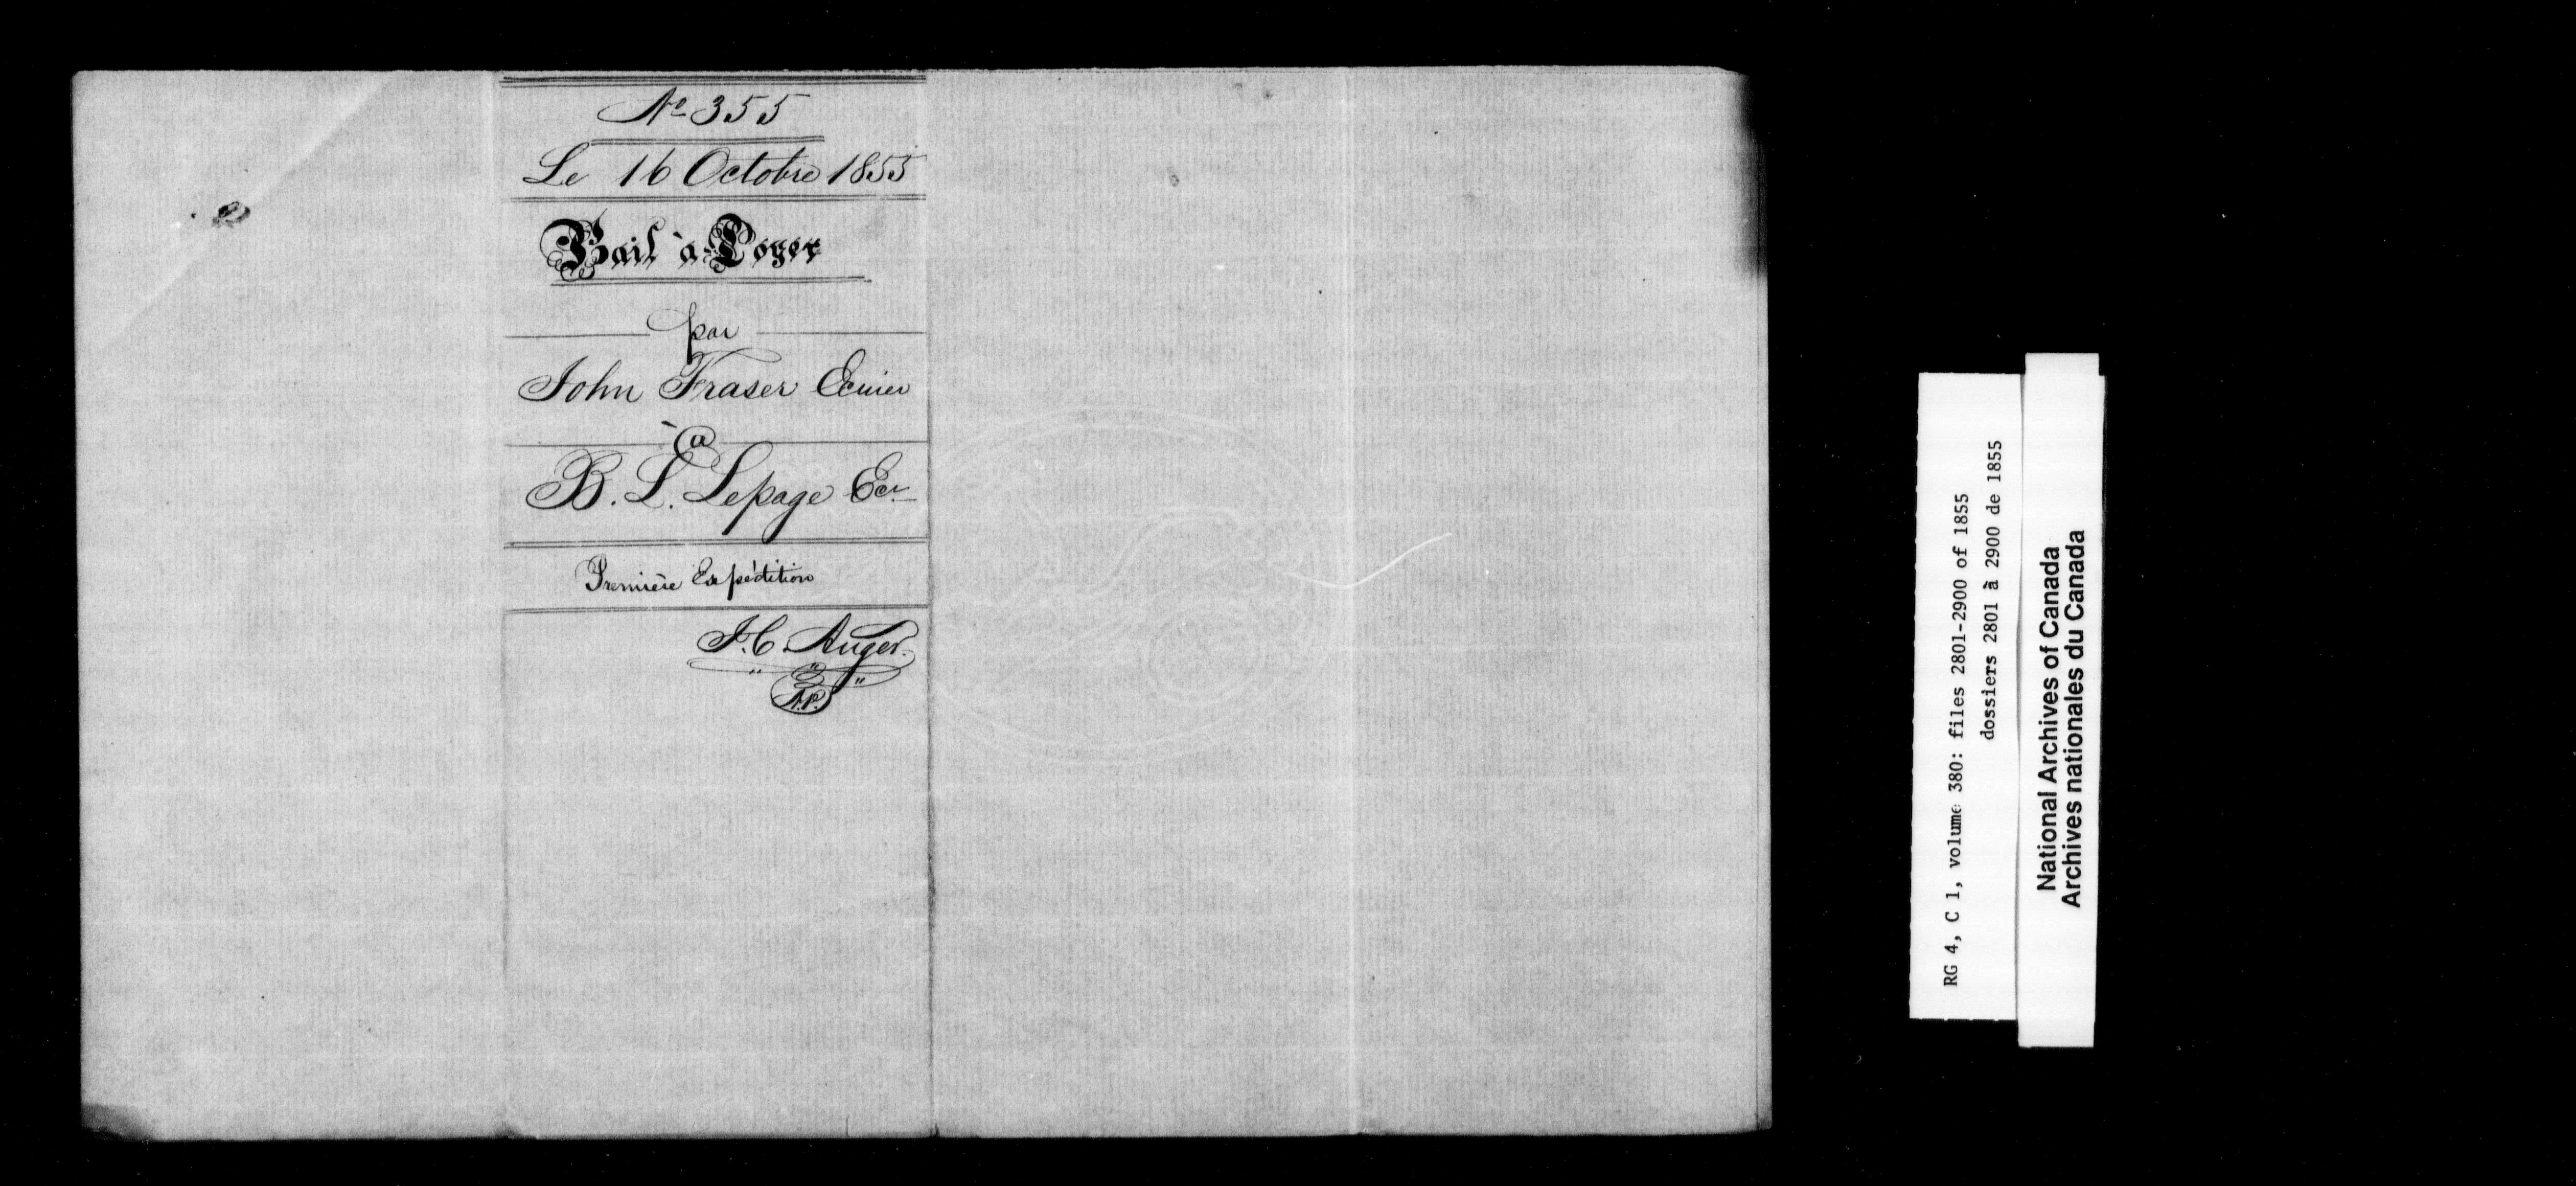 No 355
Le 16 Octobre 1855
Bail à Loyer
par
John Fraser Ecuier
à
B. L. Lepage Ecr
Première Expédition
J. C. Auger
N.P.
RG 4, C 1, volume 380: files 2801-2900 of 1855
dossiers 2801 à 2900 de 1855
National Archives of Canada
Archives nationales du Canada